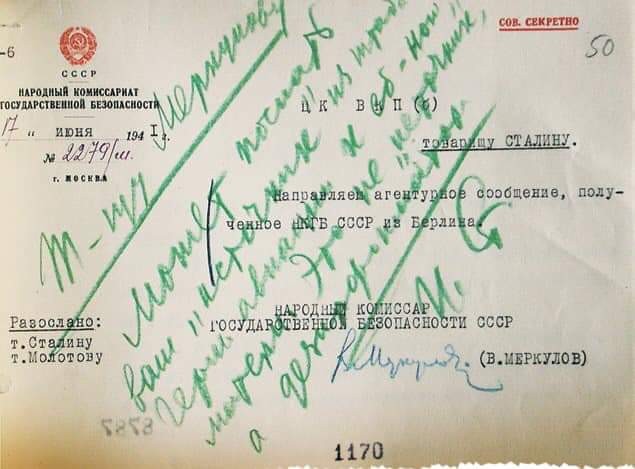 -6
СОВ. СЕКРЕТНО
50
СССР
НАРОДНЫЙ КОМИССАРИАТ
ГОСУДАРСТВЕННОЙ БЕЗОПАСНОСТИ
17 " ИЮНЯ 1941 г.
№ 2279/м
г. МОСКВА
ЦК ВКП(б)
товарищу СТАЛИНУ.
Направляем агентурное сообщение, полу-
ченное НКГБ СССР из Берлина.
НАРОДНЫЙ КОМИССАР
ГОСУДАРСТВЕННОЙ БЕЗОПАСНОСТИ СССР
(В.МЕРКУЛОВ)
Разослано:
т.Сталину
т.Молотову
Т-щу Меркулову
Может послать
ваш "источник" из штаба
герм. авиации к еб-ной
матери. Это не "источник",
а дезинформатор.
И. Ст.
1170